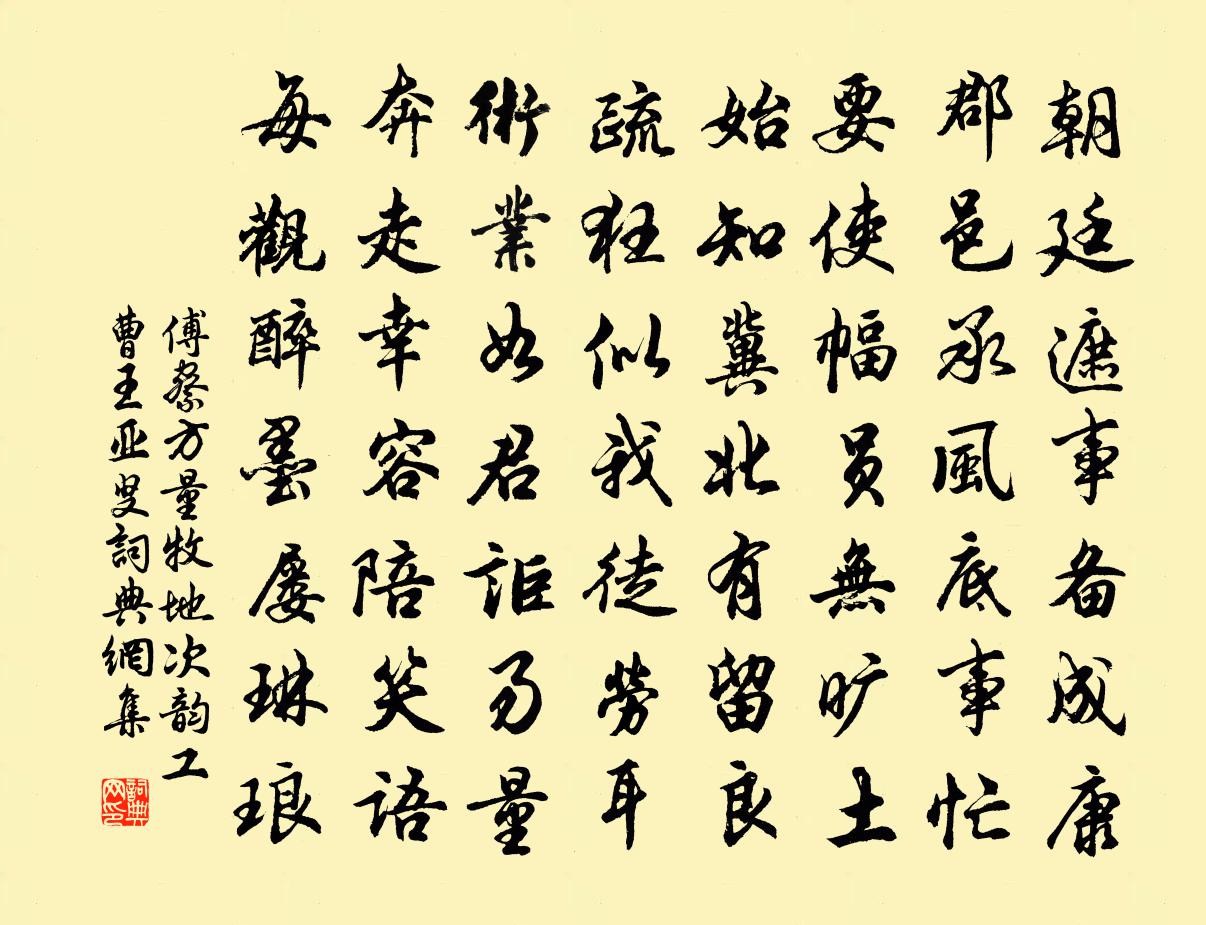 朝廷遮事备成康
郡邑承風底事忙
要使幅员無旷土
始知冀北有留良
疏狂似我徒勞耳
術業如君詎易量
奔走幸容陪笑语
每觀醉墨屢琳琅
傅察方量牧地次韵工
曹王亚叟詞典網集
詞典网印